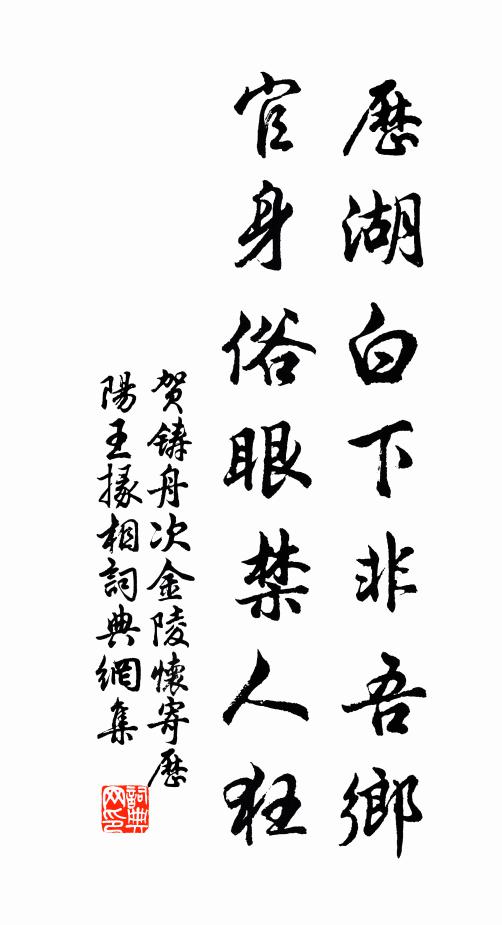 歷湖白下非吾鄉
官身俗眼禁人狂
賀鑄舟次金陵懷寄歷
陽王掾相詞典網集
詞典网印